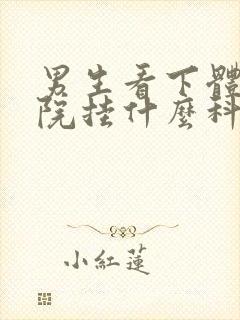 男生看下體
院挂什麼科
小紅蓮